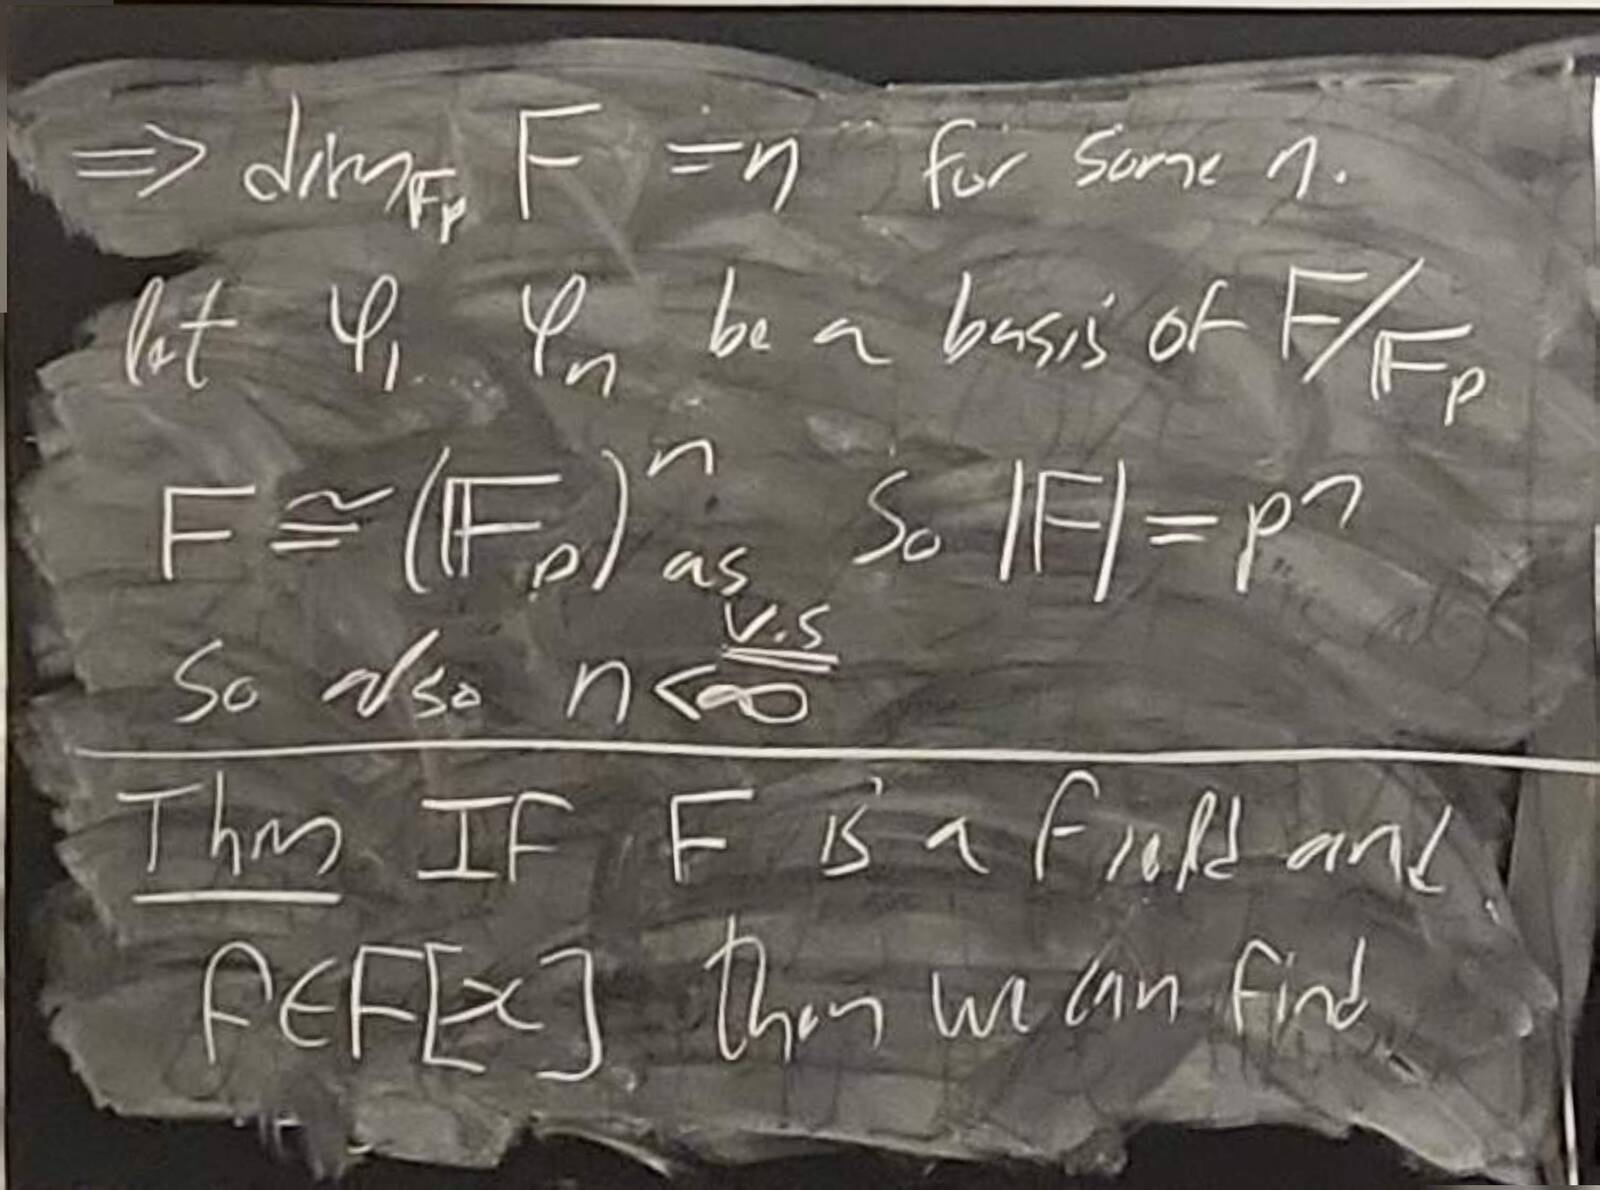 ⇒ dim_{𝔽_p} F = n for some n.
let φ_1 φ_n be a basis of F/𝔽_p
F ≅ (𝔽_p)^n as v.s So |F| = p^n
So also n < ∞
Thm If F is a field and
f ∈ F[x] then we can find